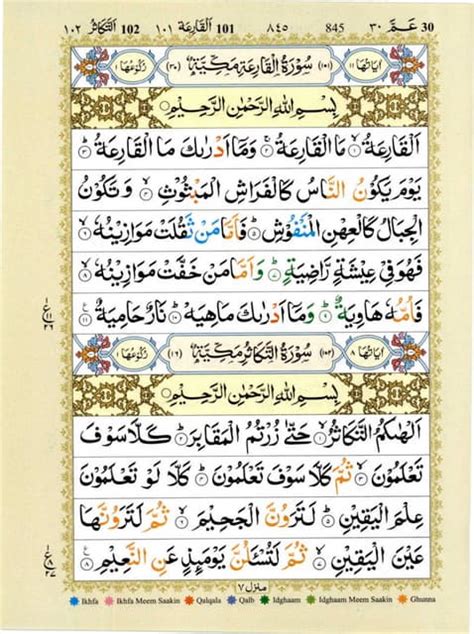 ١٠٢ اَلتَّكَاثُر 102 ١٠١ اَلْقَارِعَة 101 ٨٤٥ 845 عَمَّ ٣٠ 30
اٰيَاتُهَا ١١ (١٠١) سُوْرَةُ الْقَارِعَةِ مَكِّيَّةٌ (٣٠) رُكُوْعُهَا ١
بِسْمِ اللهِ الرَّحْمٰنِ الرَّحِيْمِ
اَلْقَارِعَةُ ۙ١ مَا الْقَارِعَةُ ۚ٢ وَمَاۤ اَدْرٰىكَ مَا الْقَارِعَةُ ؕ٣
يَوْمَ يَكُوْنُ النَّاسُ كَالْفَرَاشِ الْمَبْثُوْثِ ۙ٤ وَتَكُوْنُ
الْجِبَالُ كَالْعِهْنِ الْمَنْفُوْشِ ؕ٥ فَاَمَّا مَنْ ثَقُلَتْ مَوَازِيْنُهٗ ۙ٦
فَهُوَ فِيْ عِيْشَةٍ رَّاضِيَةٍ ؕ٧ وَاَمَّا مَنْ خَفَّتْ مَوَازِيْنُهٗ ۙ٨
فَاُمُّهٗ هَاوِيَةٌ ؕ٩ وَمَاۤ اَدْرٰىكَ مَا هِيَهْ ؕ١٠ نَارٌ حَامِيَةٌ ١١
اٰيَاتُهَا ٨ (١٠٢) سُوْرَةُ التَّكَاثُرِ مَكِّيَّةٌ (١٦) رُكُوْعُهَا ١
بِسْمِ اللهِ الرَّحْمٰنِ الرَّحِيْمِ
اَلْهٰىكُمُ التَّكَاثُرُ ۙ١ حَتّٰى زُرْتُمُ الْمَقَابِرَ ؕ٢ كَلَّا سَوْفَ
تَعْلَمُوْنَ ۙ٣ ثُمَّ كَلَّا سَوْفَ تَعْلَمُوْنَ ؕ٤ كَلَّا لَوْ تَعْلَمُوْنَ
عِلْمَ الْيَقِيْنِ ؕ٥ لَتَرَوُنَّ الْجَحِيْمَ ۙ٦ ثُمَّ لَتَرَوُنَّهَا
عَيْنَ الْيَقِيْنِ ۙ٧ ثُمَّ لَتُسْـَٔلُنَّ يَوْمَئِذٍ عَنِ النَّعِيْمِ ٨
منزل ٧
Ikhfa Ikhfa Meem Saakin Qalqala Qalb Idghaam Idghaam Meem Saakin Ghunna